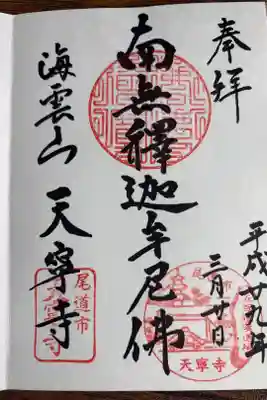 奉拝
平成廿九年
三月廿日
南無釋迦牟尼佛
海雲山 天寧寺
尾道市
天寧寺